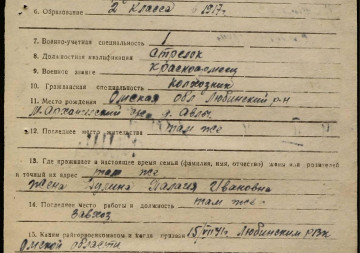 6. Образование 2 класса 1917г
7. Военно-учетная специальность 1
8. Должностная квалификация Стрелок
9. Военное звание Красноармеец
10. Гражданская специальность Колхозник
11. Место рождения Омская обл Любинский р-н
12. Последнее место жительства там же
13. Где проживает в настоящее время семья (фамилия, имя, отчество) жены или родителей
и точный их адрес там же
Жена Пелагея Ивановна
14. Последнее место работы и должность там же
завхоз
15. Каким райгорвоенкоматом и когда призван 15 VIII 41г Любинским РВК
Омской области